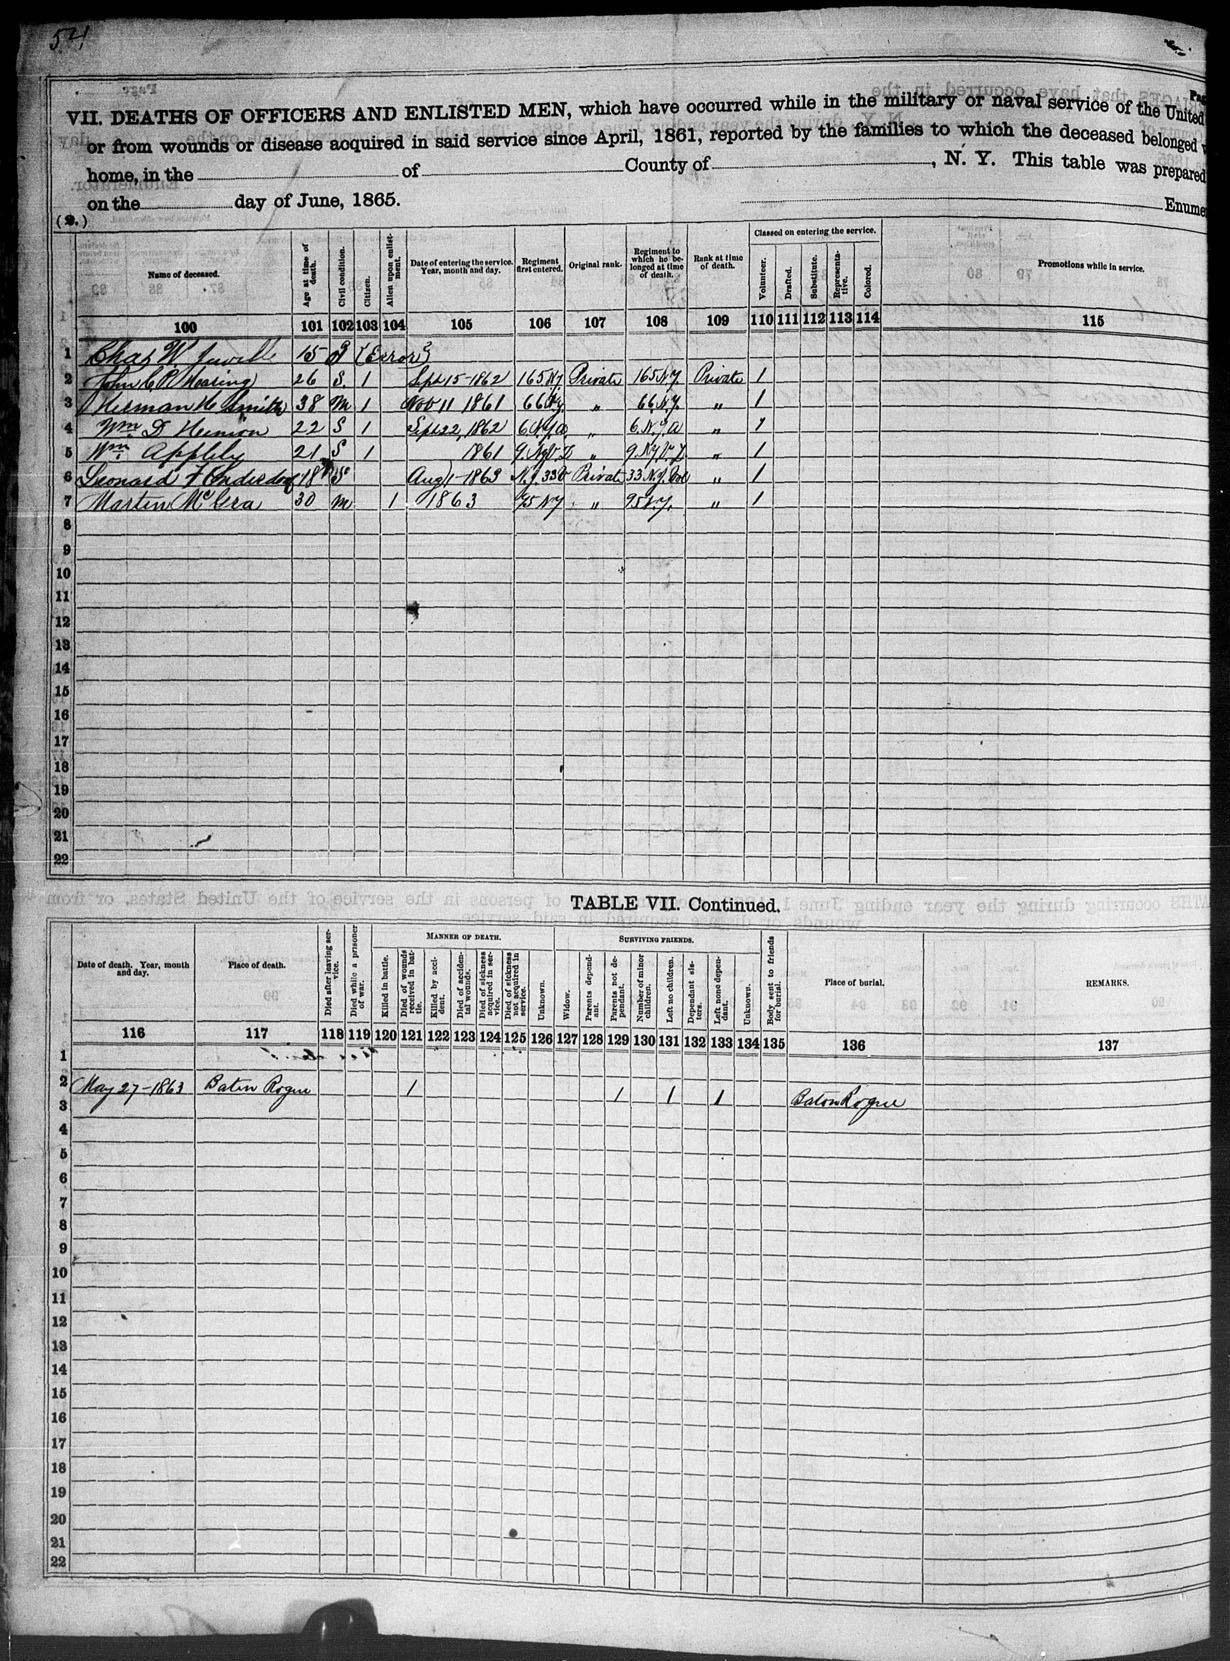 54
VII. DEATHS OF OFFICERS AND ENLISTED MEN, which have occurred while in the military or naval service of the United
or from wounds or disease acquired in said service since April, 1861, reported by the families to which the deceased belonged
home, in the of County of , N. Y. This table was prepared
on the day of June, 1865. Enumer
(9.)
Name of deceased. Age at time of death. Civil condition. Citizen. Alien upon enlistment. Date of entering the service. Year, month and day. Regiment first entered. Original rank. Regiment to which he belonged at time of death. Rank at time of death. Classed on entering the service. Volunteer. Drafted. Substitute. Representative. Colored. Promotions while in service.
100 101 102 103 104 105 106 107 108 109 110 111 112 113 114 115
1 Chas W 15 (Error)
2 John C P 26 S. 1 Sept 15-1862 165 NY Private 165 N.Y. Private 1
3 Herman H Smith 38 M 1 Nov 11 1861 66 Ny. " 66 N.Y. " 1
4 Wm D Henion 22 S 1 Sept 22, 1862 6 N.Y.A. " 6 N.Y.A " 1
5 Wm Appleby 21 S 1 1861 9. " 9. " 1
6 Leonard F 18 S Aug 1-1863 N.J. 33d Private 33 N.J. Vol " 1
7 Martin McCra 30 M 1 1863 95 NY " 95 N.Y. " 1
8
9
10
11
12
13
14
15
16
17
18
19
20
21
22
TABLE VII. Continued.
Date of death. Year, month and day. Place of death. Died after leaving service. Died while a prisoner of war. MANNER OF DEATH. Killed in battle. Died of wounds received in battle. Killed by accident. Died of accidental wounds. Died of sickness acquired in service. Died of sickness not acquired in service. Unknown. SURVIVING FRIENDS. Widow. Parents dependant. Parents not dependant. Number of minor children. Left no children. Dependant sisters. Left none dependant. Unknown. Body sent to friends for burial. Place of burial. REMARKS.
116 117 118 119 120 121 122 123 124 125 126 127 128 129 130 131 132 133 134 135 136 137
1
2 May 27-1863 Baten Rogue 1 1 1 1 Baton Rogue
3
4
5
6
7
8
9
10
11
12
13
14
15
16
17
18
19
20
21
22